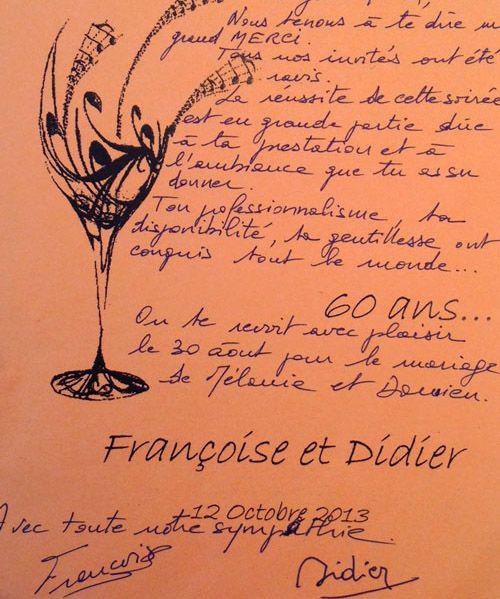 Nous tenons à te dire un
grand MERCI.
Tous nos invités ont été
ravis.
La réussite de cette soirée
est en grande partie dûe
à ta prestation et à
l'ambiance que tu as su
donner.
Ton pofessionnalisme, ta
disponibilité, ta gentillesse ont
conquis tout le monde...
60 ans...
On te revoit avec plaisir
le 30 août pour le mariage
de Mélanie et Damien.
Françoise et Didier
12 Octobre 2013
Avec toute notre sympathie
Françoise
Didier